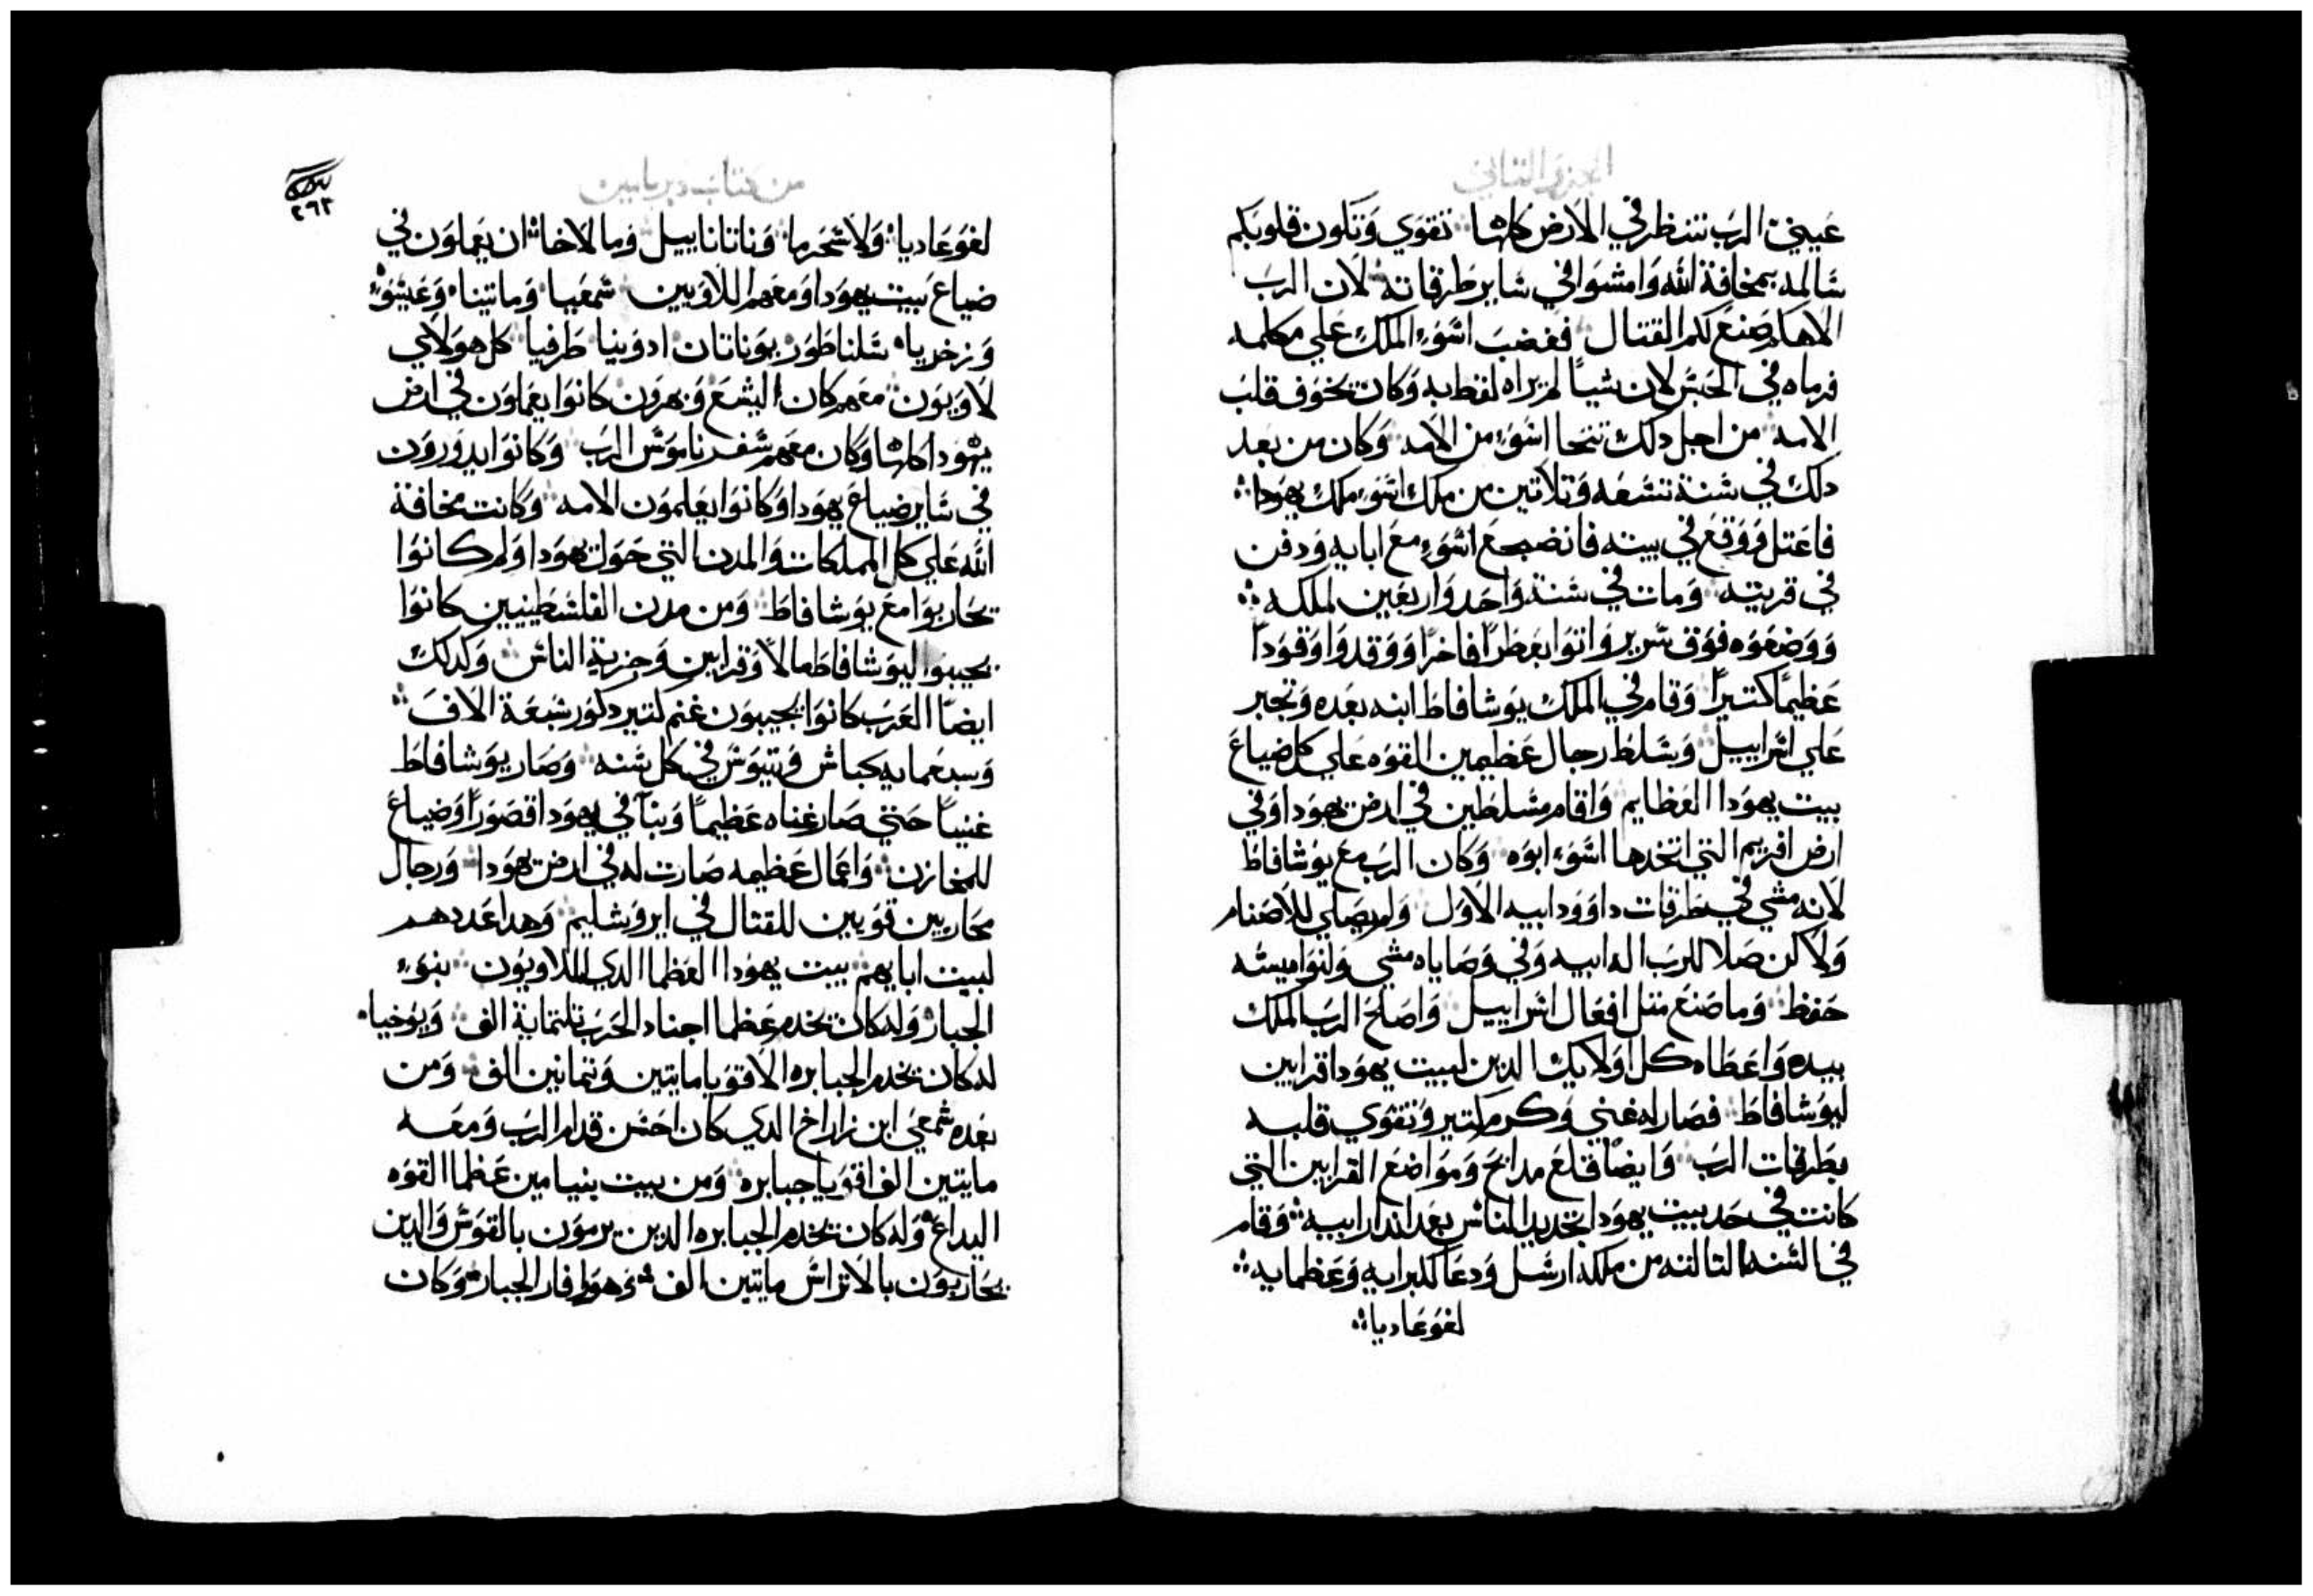 الجزو الثاني
عيني الرب تنظر في الارض كلها تقوي وتكون قلوبكم
سالمه بمخافة الله وامشوا في ساير طرقاته لان الرب
الاهكم صنع لكم القتال فغضب اسوء الملك علي مكلمه
فرماه في الحبس لان شياً لم يراه لفظ به وكان يخوف قلب
الامه من اجل دلك تنحا اسوء من الامه وكان من بعد
دلك في سنة تسعه وتلاتين من ملك اسوء ملك يهودا
فاعتل ووقع في بيته فانضجع اسوء مع ابايه ودفن
في قريته ومات في سنة واحد واربعين لملكه
ووضعوه فوق سرير واتوا بعطراً فاخراً ووقدوا وقوداً
عظيماً كتيراً وقام في الملك يوشافاط ابنه بعده وتجبر
علي اسراييل وسلط رجال عظيمين القوه علي كل ضياع
بيت يهودا العظايم واقام مسلطين في ارض يهودا وفي
ارض افريم التي اتخدها اسوء ابوه وكان الرب مع يوشافاط
لانه مشي في طرقات داوود ابيه الاول ولم يصلي للاصنام
ولاكن صلا للرب اله ابيه وفي وصاياه مشي ولنواميسه
حفظ وما صنع متل افعال اسراييل واصلح الرب الملك
بيده واعطاه كل اولايك الدين لبيت يهودا قرابين
ليوشافاط فصار له غني وكرم كتير وتقوي قلبه
بطرقات الرب وايضاً قلع مدابح ومواضع القرابين التي
كانت في حد بيت يهودا تخديد الناس بعد اندار ابيه وقام
في السنه التالته من ملكه ارسل ودعا كبرايه وعظمايه
لغوعاديا
من كتاب دبريامين
٢٦٢
لغوعاديا ولاسحرما وناتاناييل وما لاخا ان يعملون في
ضياع بيت يهودا ومعهم اللاويين شمعيا وماتينا وعيشوء
وزخريا سلناطور يوناتان ادونيا طرفيا كل هولاي
لاويون معهم كان اليشع ويهرون كانوا يعملون في ارض
يهودا كلها وكان معهم سفر ناموس الرب وكانوا يدورون
في ساير ضياع يهودا وكانوا يعلمون الامه وكانت مخافة
الله علي كل المملكات والمدن التي حول يهودا ولم كانوا
يحاربوا مع يوشافاط ومن مدن الفلسطينيين كانوا
يجيبوا ليوشافاط مالا وقرابين وجزية الناس وكدلك
ايضاً العرب كانوا يجيبون غنم كتير دكور سبعة الاف
وسبعمايه كباش وتيوس في كل سنه وصار يوشافاط
غنياً حتي صار غناه عظيماً وبنا في يهودا قصوراً وضياع
للمخازن واعمال عظيمه صارت له في ارض يهودا ورجال
محاربين قويين للقتال في ايروشليم وهدا عددهم
لبيت ابايهم بيت يهودا العظما الدي للاويون بنوء
الجبار وله كان يخدم عظما اجناد الحرب تلتماية الف ويوخيا
له كان يخدم الجبابره الاقويا مايتين وتمانين الف ومن
بعده شمعي ابن زاراخ الدي كان احسن قدام الرب ومعه
مايتين الف اقويا جبابره ومن بيت بنيامين عظما القوه
اليداع وله كان يخدم الجبابره الدين يرمون بالقوس والدين
يحاربون بالاتراس مايتين الف وهوافار الجبار وكان